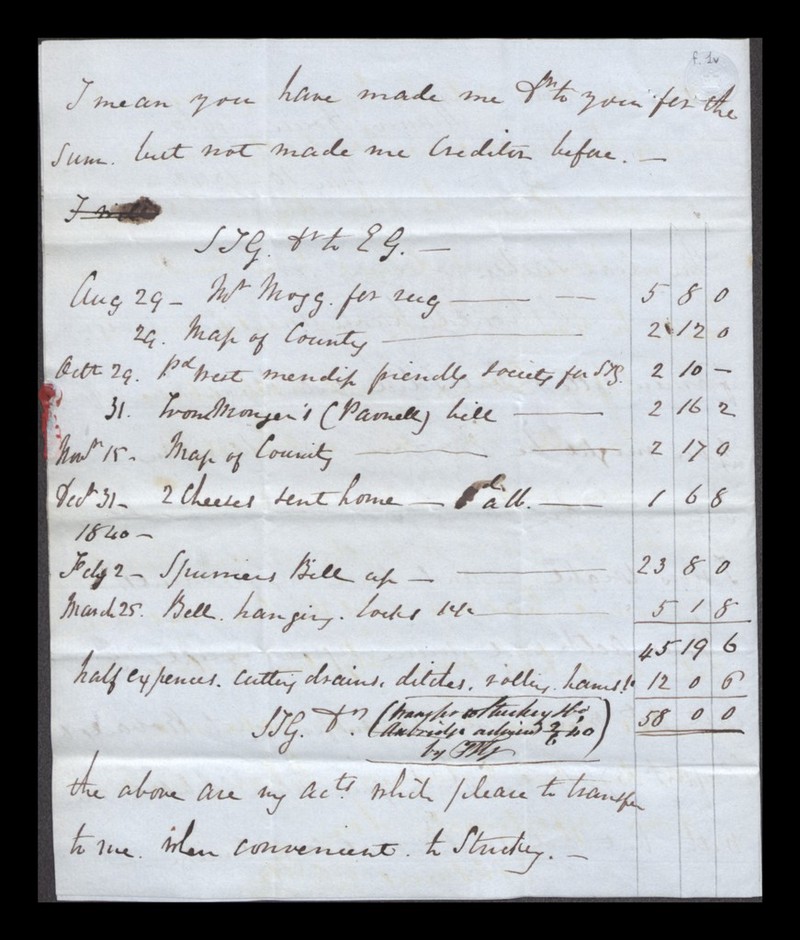 f. 1v
I mean you have made me Dr. to you for the
Sum. but not made me Creditor before. —
I will
STG. Dr. to EG. —
Aug 29 — Mr. Mogg. for rug — 5 8 0
29. Map of County — 2 12 0
Octr. 29. pd. West mendip friendly society for STG. 2 10 —
31. IronMonger's (Parnell) bill — 2 16 2
Novr. 15. Map of County — 2 17 0
Decr. 31 — 2 Cheeses sent home — d a lb. — 1 6 8
1840 —
Feby 2 — Spurriers Bill — 23 8 0
March 25. Bell. hanging. locks &c — 5 1 8
45 19 6
half expences. cutting drains. ditches. rolling. 12 0 6
STG. Dr. (transfer to Stuckey & Co
Axbridge 40
by) 58 0 0
the above are my accts. which please to transfer
to me. when convenient. to Stuckey. —